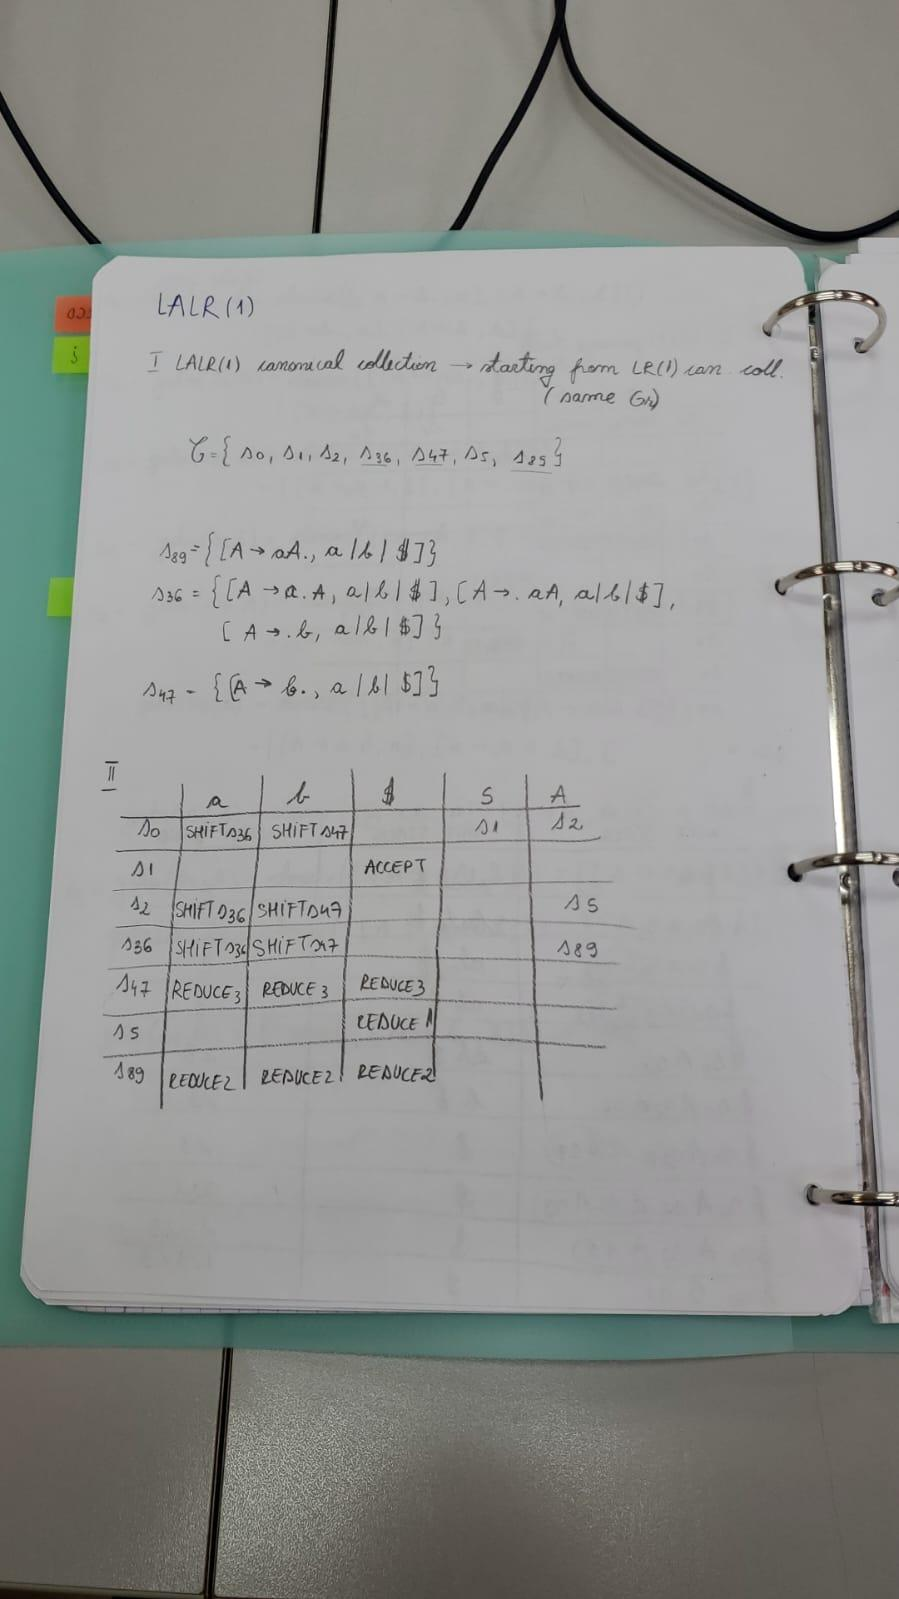 LALR(1)
I LALR(1) canonical collection → starting from LR(1) can. coll.
(same Gr)
C={ s0, s1, s2, s36, s47, s5, s89}
s89={[A → aA., a|b|$]}
s36 = {[A → a.A, a|b|$], [A → .aA, a|b|$],
[A → .b, a|b|$]}
s47 = {[A → b., a|b|$]}
II
a b $ S A
s0 SHIFT s36 SHIFT s47 s1 s2
s1 ACCEPT
s2 SHIFT s36 SHIFT s47 s5
s36 SHIFT s36 SHIFT s47 s89
s47 REDUCE3 REDUCE 3 REDUCE3
s5 REDUCE 1
s89 REDUCE2 REDUCE2 REDUCE2